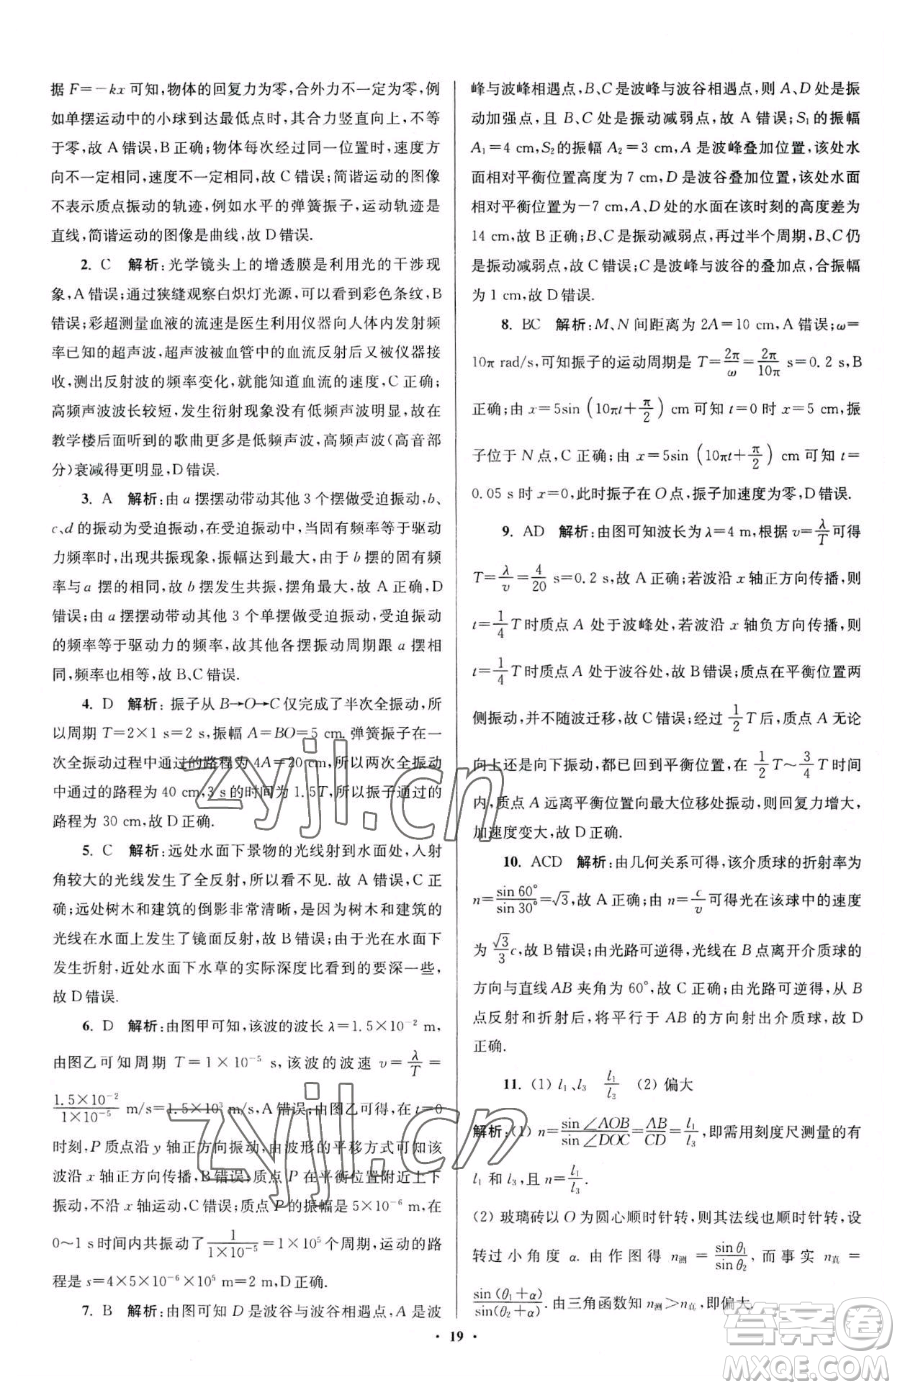 据 F=-kx 可知,物体的回复力为零,合外力不一定为零,例
如单摆运动中的小球到达最低点时,其合力竖直向上,不
等于零,故 A 错误,B 正确;物体每次经过同一位置时,速度
方向不一定相同,故 C 错误;简谐运动的图像
不表示质点振动的轨迹,例如水平的弹簧振子,运动轨迹是
直线,简谐运动的图像是曲线,故 D 错误.
2. C 解析:光学镜头上的增透膜是利用光的干涉现
象,A 错误;通过狭缝观察白炽灯光源,可以看到彩色条纹,B
错误;彩超测量血液的流速是医生利用仪器向人体内发射频
率已知的超声波,超声波被血管中的血流反射后又被仪器接
收,测出反射波的频率变化,就能知道血流的速度,C 正确;
高频声波波长较短,发生衍射现象没有低频声波明显,故在
教学楼后面听到的歌曲更多是低频声波,高频声波(高音部
分)衰减得更明显,D 错误.
3. A 解析:由 a 摆摆动带动其他 3 个摆做受迫振动,b、
c、d 的振动为受迫振动,在受迫振动中,当固有频率等于驱动
力频率时,出现共振现象,振幅达到最大,由于 b 摆的固有频
率与 a 摆的相同,故 b 摆发生共振,摆角最大,故 A 正确,D
错误;由 a 摆摆动带动其他 3 个单摆做受迫振动,受迫振动
的频率等于驱动力的频率,故其他各摆振动周期跟 a 摆相
同,频率也相等,故 B、C 错误.
4. D 解析:振子从 B→O→C 仅完成了半次全振动,所
以周期 T=2×1 s=2 s,振幅 A=BO=5 cm. 弹簧振子在一次
全振动过程中通过的路程为 4A=20 cm,所以两次全振动
中通过的路程为 40 cm,3 s 的时间为 1.5T,所以振子通过的
路程为 30 cm,故 D 正确.
5. C 解析:远处水面下景物的光线射到水面处,入射
角较大的光线发生了全反射,所以看不到. 故 A 错误,C 正
确;远处树木和建筑的倒影非常清晰,是因为树木和建筑的
光线在水面上发生了镜面反射,故 B 错误;由于光在水面上
发生折射,近处水面下水草的实际深度比看到的要深一些,
故 D 错误.
6. D 解析:由图甲可知,该波的波长 λ=1.5×10⁻² m,
由图乙可知周期 T=1×10⁻⁵ s,该波的波速 v=λ/T=
1.5×10⁻²/1×10⁻⁵ m/s=1.5×10³ m/s,A 错误;由图乙可得,在 t=0
时刻,P 质点沿 y 轴正方向振动,由波形的平移方式可知该
波沿 x 轴正方向传播,B 错误;质点 P 在平衡位置附近上下
振动,不沿 x 轴运动,C 错误;质点 P 的振幅是 5×10⁻⁶ m,在
0~1 s 时间内共振动了 1/1×10⁻⁵=1×10⁵ 个周期,运动的路
程是 s=4×5×10⁻⁶×10⁵ m=2 m,D 正确.
7. B 解析:由图可知 D 是波谷与波谷相遇点,A 是波
峰与波峰相遇点,B、C 是波峰与波谷相遇点,则 A、D 处是振
动加强点,B、C 处是振动减弱点,故 A、C 错误;S₁ 的振幅
A₁=4 cm,S₂ 的振幅 A₂=3 cm,A 是波峰叠加位置,该处水
面相对平衡位置高度为 7 cm,D 是波谷叠加位置,该处水面
相对平衡位置为-7 cm,A、D 处水面在该时刻的高度差为
14 cm,故 B 正确;C 是振动减弱点,再过半个周期,B、C 仍
是振动减弱点,B、C 两点是波峰与波谷的叠加点,所以位移
为 1 cm,故 D 错误.
8. BC 解析:M、N 间距离为 2A=10 cm,A 错误;ω=
10π rad/s,可知振子的运动周期是 T=2π/ω=2π/10π s=0.2 s,B
正确;由 x=5sin(10πt+π/2) cm 可知 t=0 时 x=5 cm,振
子位于 N 点,C 正确;由 x=5sin(10πt+π/2) cm 可知 t=
0.05 s 时 x=0,此时振子在 O 点,振子速度最大,D 错误.
9. AD 解析:由图可知波长为 λ=4 m,根据 v=λ/T 可得
T=λ/v=4/20 s=0.2 s,故 A 正确;若波沿 x 轴正方向传播,则
t=1/4 T 时质点 A 处于波峰处,若波沿 x 轴负方向传播,则
t=1/4 T 时质点 A 处于波谷处,故 B 错误;质点在平衡位置两
侧振动,并不随波迁移,故 C 错误;经过 1/2 T 后,质点 A 无论
向上还是向下振动,都会回到平衡位置,在 1/2 T~3/4 T 时间
内,质点 A 远离平衡位置向最大位移处振动,加速度变大,故 D 正确.
10. ACD 解析:由几何关系可得,该介质球的折射率为
n=sin 60°/sin 30°=√3,故 A 正确;由 n=c/v 可得光在该球中的速度
为 √3/3 c,故 B 错误;由光路可逆得,光线在 B 点离开介质球的
方向与直线 AB 夹角为 60°,故 C 正确;由光路可逆得,从 B
点反射和折射后,将平行于 AB 的方向射出介质球,故 D
正确.
11. (1) l₁、l₃ l₁/l₃ (2) 偏大
解析:(1) n=sin∠AOB/sin∠DOC=AB/CD=l₁/l₃,即需用刻度尺测量的有
l₁ 和 l₃,n=l₁/l₃.
(2) 玻璃砖以 O 为圆心顺时针转,则其法线也顺时针转,设
转过小角度 α. 由作图得 n测=sinθ₁/sinθ₂,而事实 n真=
sin(θ₁+α)/sin(θ₂+α). 由三角函数知 n测>n真,即偏大.
• 19 •
zyjl.cn
zyjl.cn
答案圈
MXQE.COM